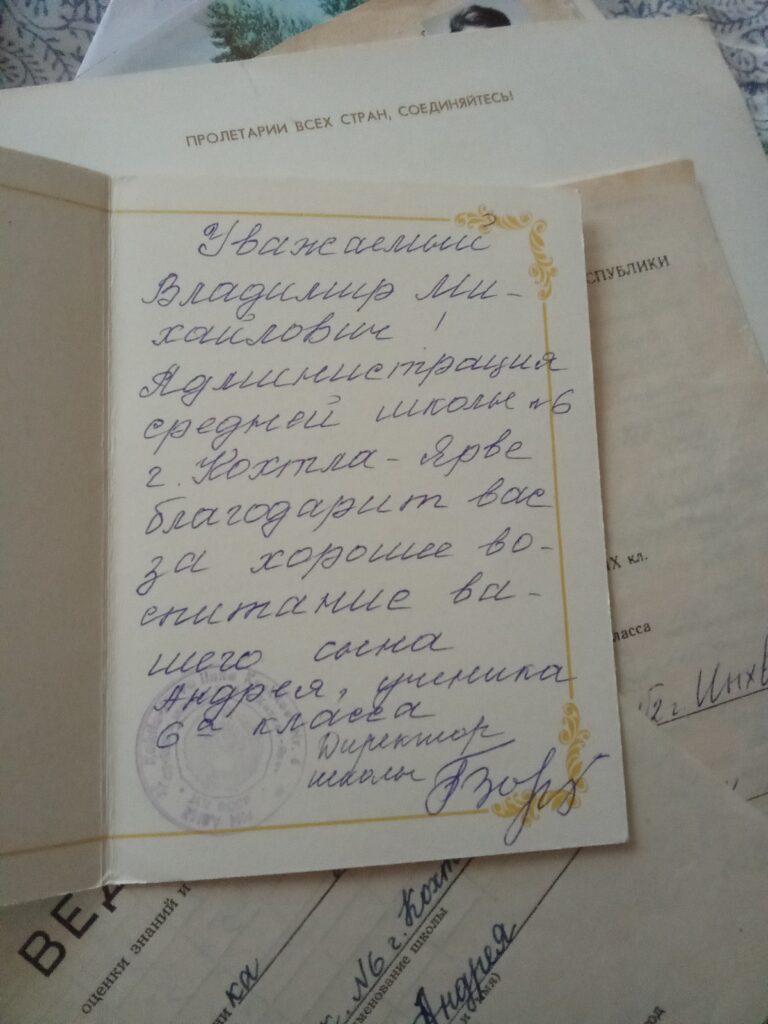 ПРОЛЕТАРИИ ВСЕХ СТРАН, СОЕДИНЯЙТЕСЬ!
СПУБЛИКИ
Уважаемый
Владимир Ми-
хайлович!
Администрация
средней школы №6
г. Кохтла-Ярве
благодарит вас
за хорошее во-
спитание ва-
шего сына
Андрея, ученика
6а класса
Директор
школы
IX кл.
ласса
ВЕД
оценки знаний и
ка
№6 г. Кохт
именование школы
Андрея